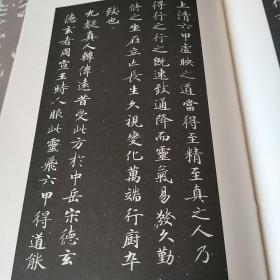 上清六甲虚映之道當得至精至真之人乃
得行之行之既速致通降而靈氣易發久勤
脩之坐在立亡長生久視變化萬端行厨卒
致也
九疑真人韓偉遠昔受此方於中岳宗德玄
德玄者周宣王時人服此靈飛六甲得道能